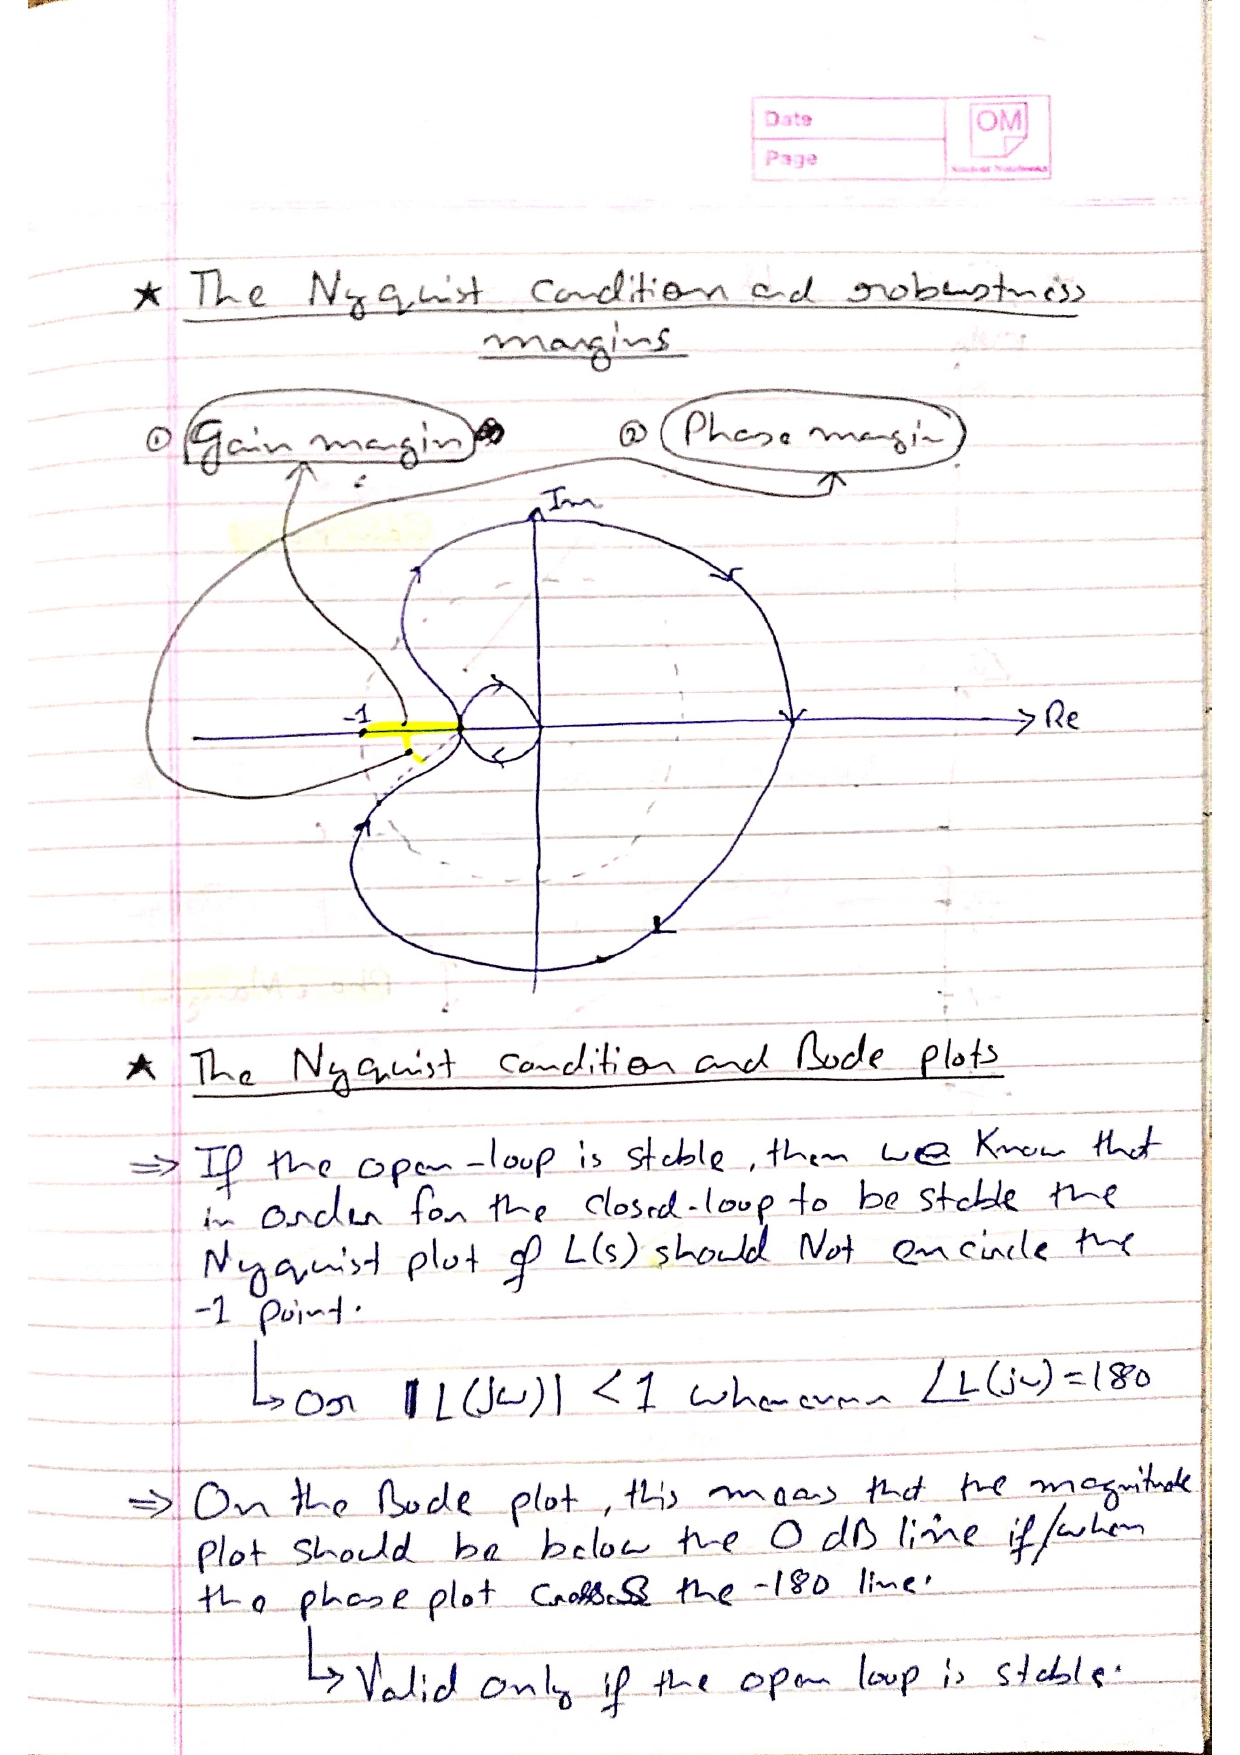 Date
OM
Page
★ The Nyquist condition and robustness
margins
① Gain margin ② Phase margin
Im
-1
Re
★ The Nyquist condition and Bode plots
⇒ If the open-loop is stable, then we know that
in order for the closed-loop to be stable the
Nyquist plot of L(s) should Not encircle the
-1 point.
↳ Or |L(jω)| < 1 whenever ∠L(jω) = 180
⇒ On the Bode plot, this means that the magnitude
plot should be below the 0 dB line if/when
the phase plot crosses the -180 line.
↳ Valid only if the open loop is stable.